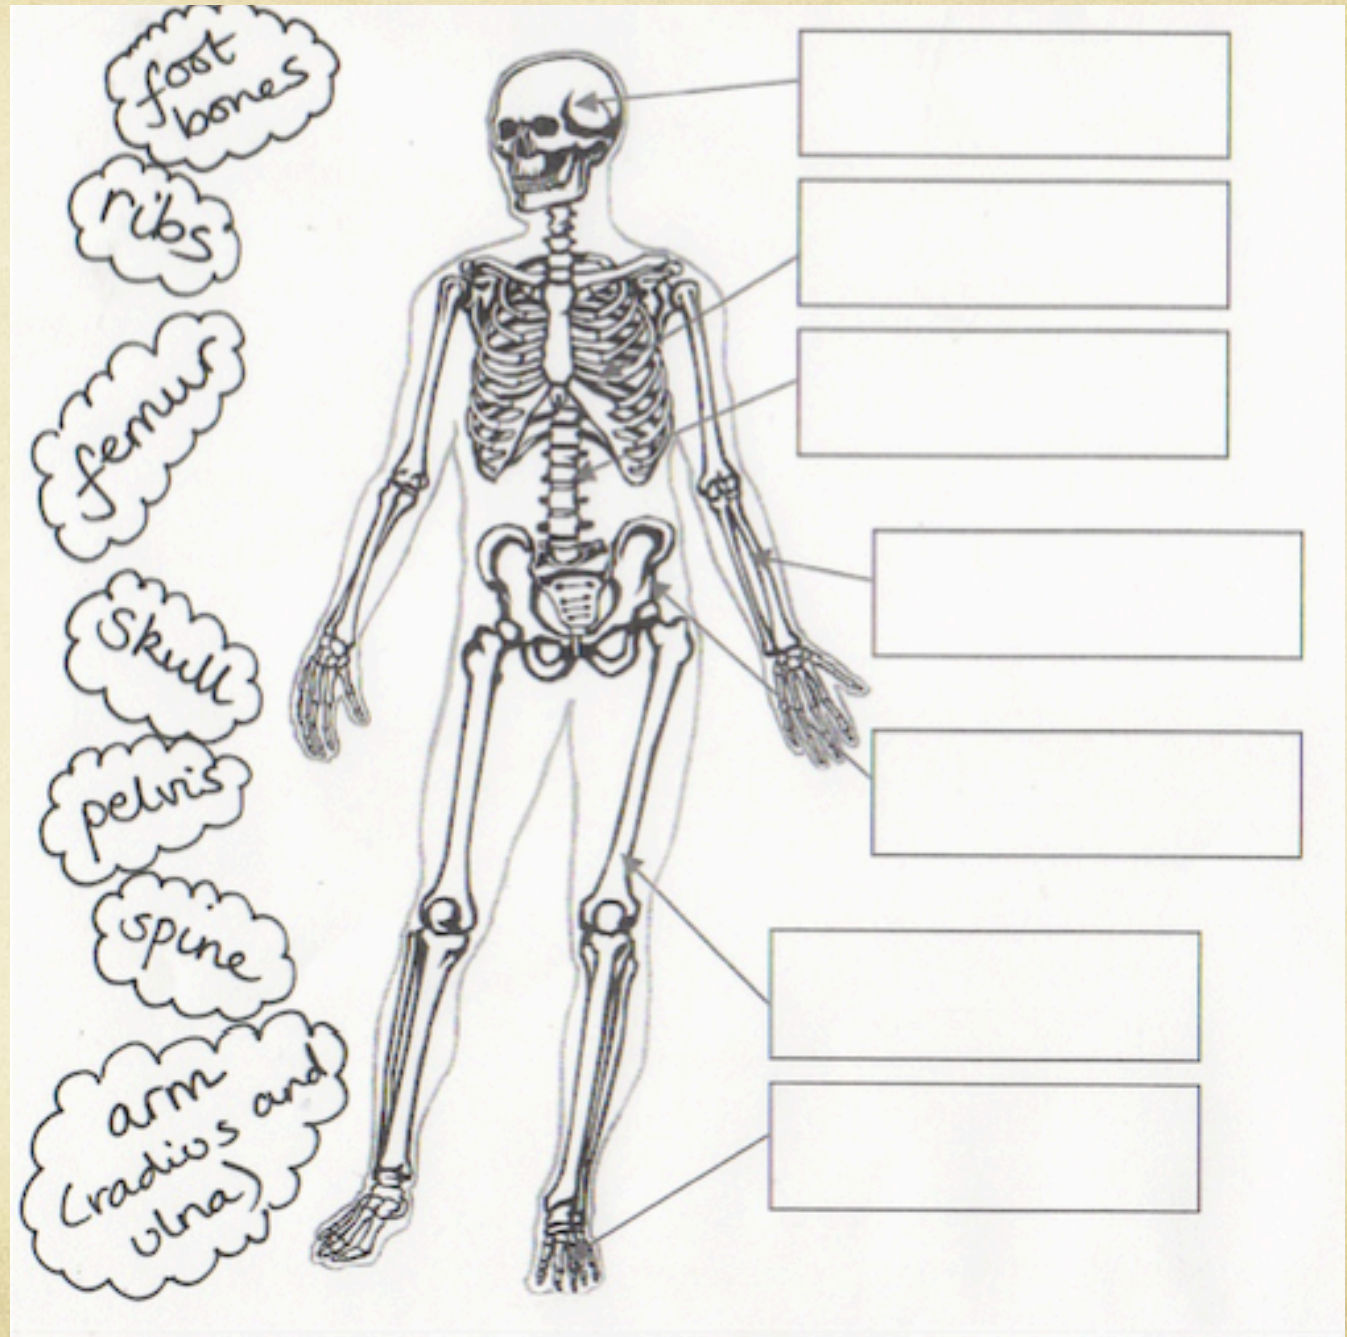 foot
bones
ribs
femur
skull
pelvis
spine
arm
(radios and
ulna)